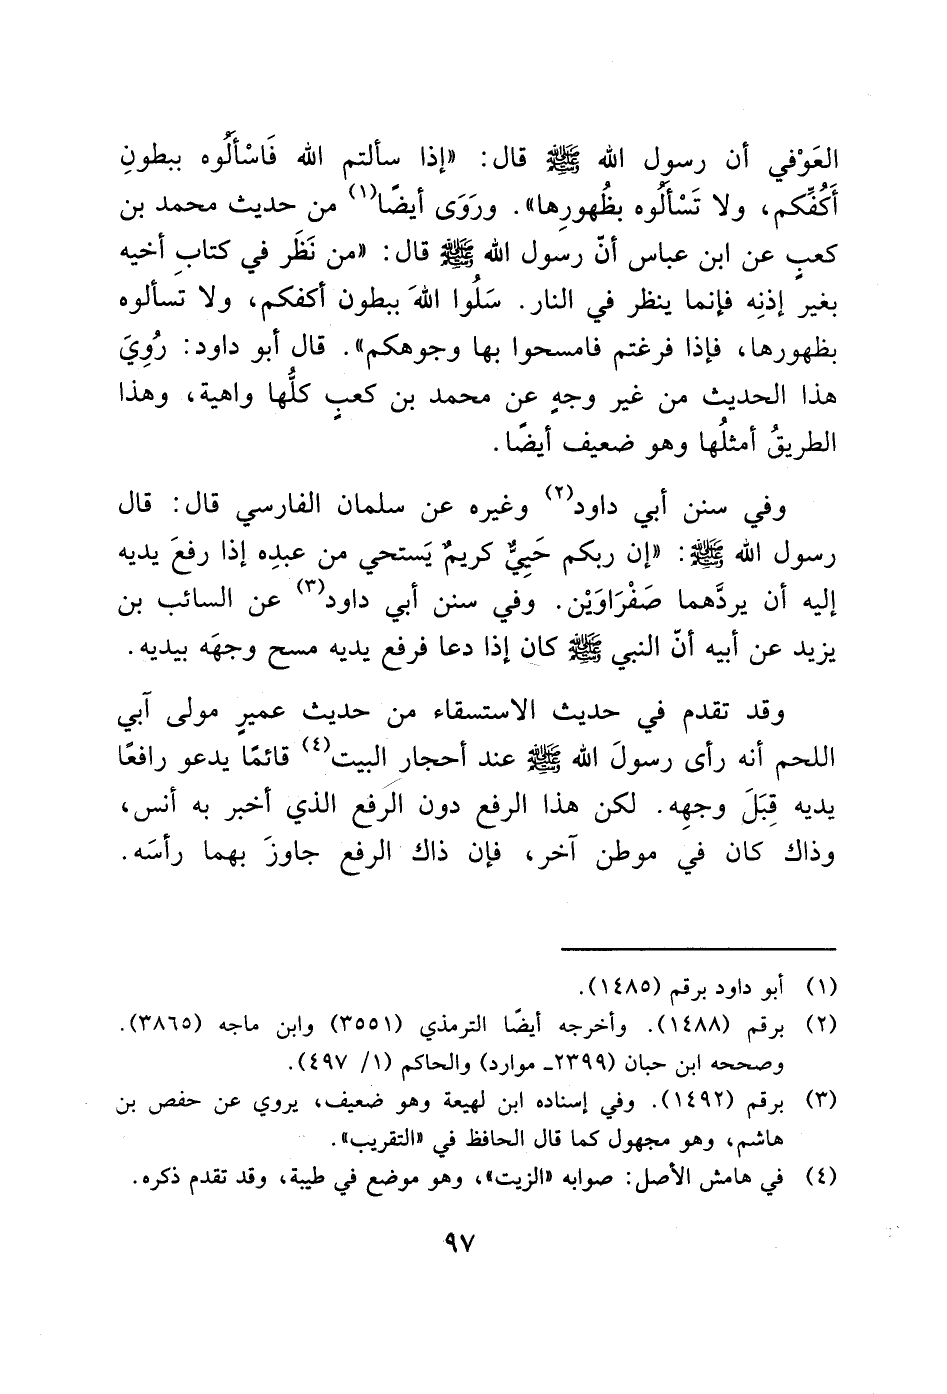 العَوْفي أن رسول الله ﷺ قال: «إذا سألتم الله فَاسْألُوه ببطونِ
أَكُفِّكم، ولا تَسْألُوه بظُهورِها». ورَوَى أيضًا(١) من حديث محمد بن
كعبٍ عن ابن عباس أنّ رسول الله ﷺ قال: «من نَظَر في كتابِ أخيه
بغير إذنِه فإنما ينظر في النار. سَلُوا اللهَ ببطون أكفكم، ولا تسألوه
بظهورها، فإذا فرغتم فامسحوا بها وجوهكم». قال أبو داود: رُوِيَ
هذا الحديث من غير وجهٍ عن محمد بن كعبٍ كلُّها واهية، وهذا
الطريقُ أمثلُها وهو ضعيف أيضًا.
وفي سنن أبي داود(٢) وغيره عن سلمان الفارسي قال: قال
رسول الله ﷺ: «إن ربكم حَيِيٌّ كريمٌ يَستحي من عبدِه إذا رفعَ يديه
إليه أن يردَّهما صَفْرَاوَيْن. وفي سنن أبي داود(٣) عن السائب بن
يزيد عن أبيه أنّ النبي ﷺ كان إذا دعا فرفع يديه مسح وجهَه بيديه.
وقد تقدم في حديث الاستسقاء من حديث عميرٍ مولى آبي
اللحم أنه رأى رسولَ الله ﷺ عند أحجارِ البيت(٤) قائمًا يدعو رافعًا
يديه قِبَلَ وجهِه. لكن هذا الرفع دون الرفع الذي أخبر به أنس،
وذاك كان في موطن آخر، فإن ذاك الرفع جاوزَ بهما رأسَه.
(١) أبو داود برقم (١٤٨٥).
(٢) برقم (١٤٨٨). وأخرجه أيضًا الترمذي (٣٥٥١) وابن ماجه (٣٨٦٥).
وصححه ابن حبان (٢٣٩٩ـ موارد) والحاكم (١/ ٤٩٧).
(٣) برقم (١٤٩٢). وفي إسناده ابن لهيعة وهو ضعيف، يروي عن حفص بن
هاشم، وهو مجهول كما قال الحافظ في «التقريب».
(٤) في هامش الأصل: صوابه «الزيت»، وهو موضع في طيبة، وقد تقدم ذكره.
٩٧